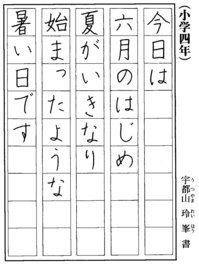 (小学四年)
今日は
六月のはじめ
夏がいきなり
始まったような
暑い日です
宇都山玲峯書
うつやまれいほう